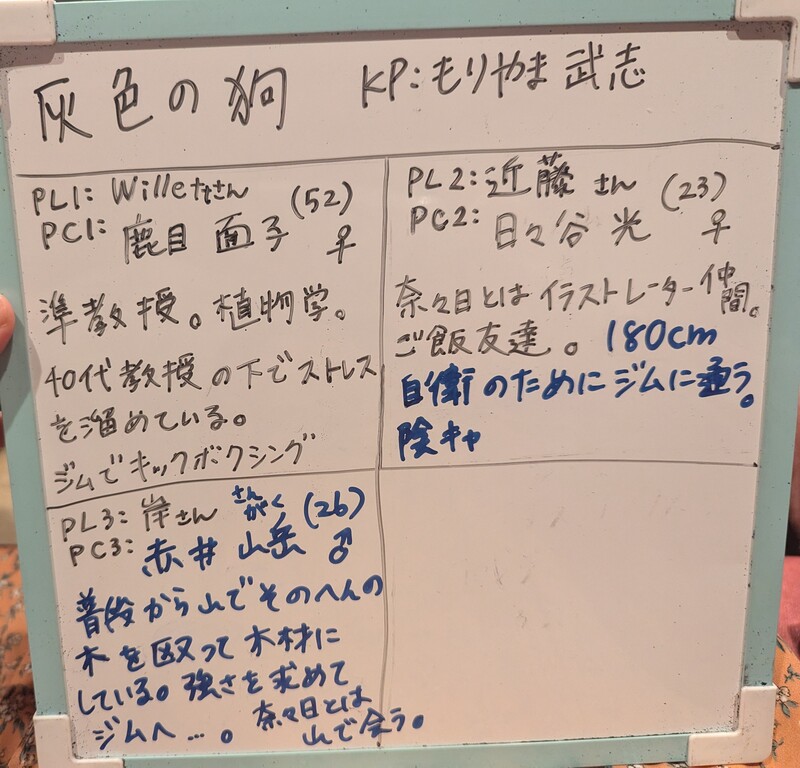 灰色の狗 KP:もりやま武志
PL1: Willeたさん
PC1: 鹿目 面子 (52) ♀
準教授。植物学。
40代教授の下でストレス
を溜めている。
ジムでキックボクシング
PL2: 近藤 さん
PC2: 日々谷 光 (23) ♀
奈々目とはイラストレーター仲間。
ご飯友達。180cm
自衛のためにジムに通う。
陰キャ
PL3: 岸さん
さんがく
PC3: 赤井 山岳 (26) ♂
普段から山でそのへんの
木を殴って木材に
している。強さを求めて
ジムへ…。奈々目とは
山で会う。